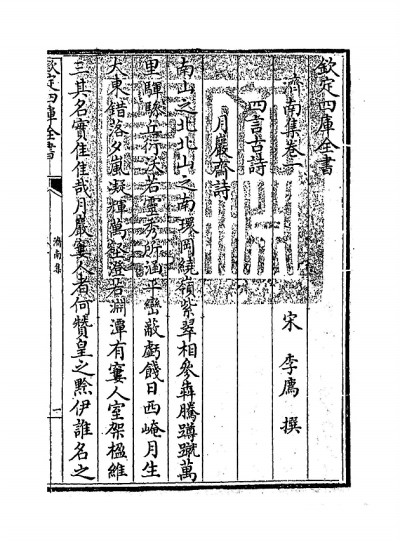 欽定四庫全書
濟南集卷一
宋 李廌 撰
四言古詩
月巖齋詩
南山之北北山之南環岡繞嶺紫翠相參犇騰蹲蹴萬
里驛丘行淡若靈秀所涵平巒敞虧餞日西崦月生
大東錯落夕嵐凝輝萬壑澄若淵潭有窶人室架楹維
三其名實佳佳哉月巖窶人者何贊皇之黥伊誰名之
欽定四庫全書
濟南集
一